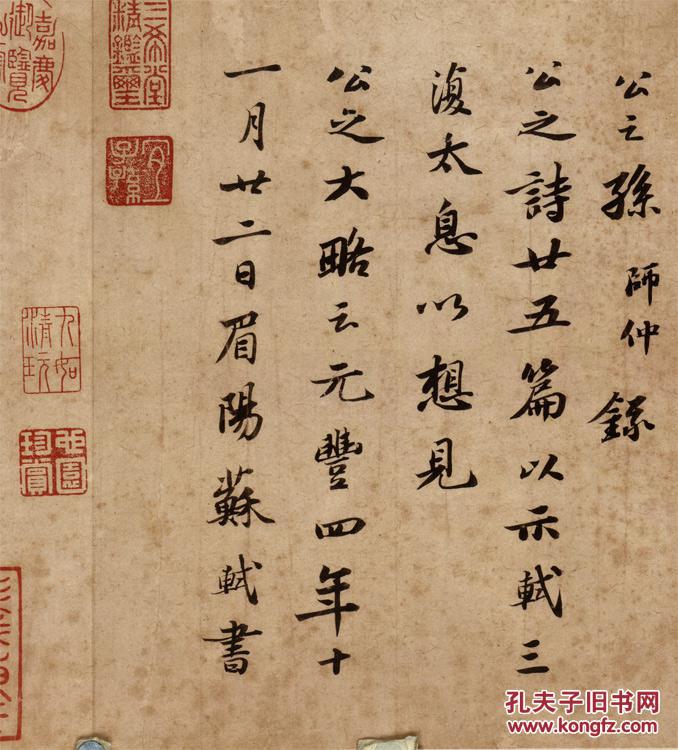 公之孫師仲錄
公之詩廿五篇以示軾三
復太息以想見
公之大略云元豐四年十
一月廿二日眉陽蘇軾書
三希堂
精鑑璽
宜
子孫
嘉慶
御覽
九如
清玩
珍賞
孔夫子旧书网
www.kongfz.com